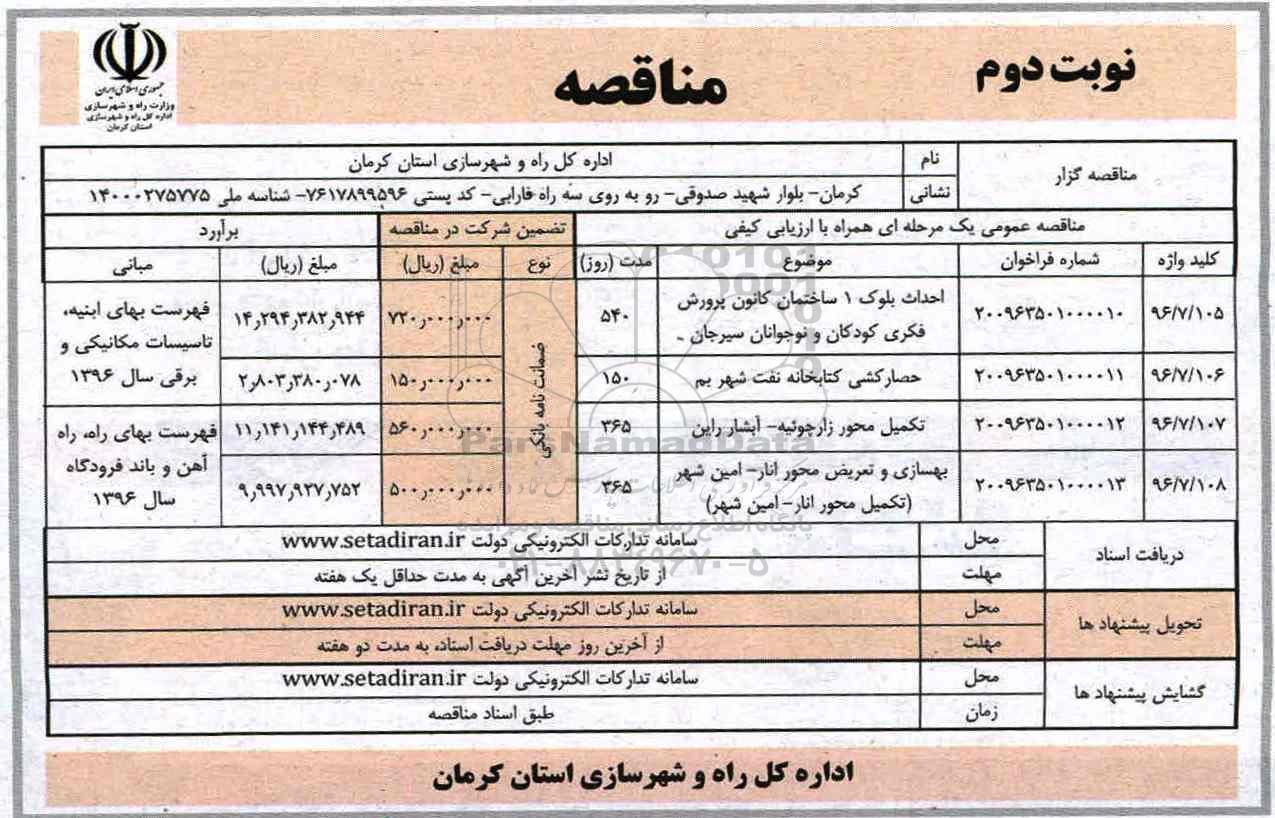 نوبت دوم
مناقصه
جمهوری اسلامی ایران
وزارت راه و شهرسازی
اداره کل راه و شهرسازی
استان کرمان
مناقصه گزار
نام
اداره کل راه و شهرسازی استان کرمان
نشانی
کرمان- بلوار شهید صدوقی- رو به روی سه راه فارابی- کد پستی ۷۶۱۷۸۹۹۵۹۶- شناسه ملی ۱۴۰۰۰۲۷۵۷۷۵
مناقصه عمومی یک مرحله ای همراه با ارزیابی کیفی
تضمین شرکت در مناقصه
برآورد
کلید واژه
شماره فراخوان
موضوع
مدت (روز)
نوع
مبلغ (ریال)
مبلغ (ریال)
مبانی
۹۶/۷/۱۰۵
۲۰۰۹۶۳۵۰۱۰۰۰۰۱۰
احداث بلوک ۱ ساختمان کانون پرورش
فکری کودکان و نوجوانان سیرجان -
۵۴۰
ضمانت نامه بانکی
۷۲۰٫۰۰۰٫۰۰۰
۱۴٫۲۹۴٫۳۸۲٫۹۴۴
فهرست بهای ابنیه،
تاسیسات مکانیکی و
برقی سال ۱۳۹۶
۹۶/۷/۱۰۶
۲۰۰۹۶۳۵۰۱۰۰۰۰۱۱
حصارکشی کتابخانه نفت شهر بم
۱۵۰
۱۵۰٫۰۰۰٫۰۰۰
۲٫۸۰۳٫۳۸۰٫۰۷۸
۹۶/۷/۱۰۷
۲۰۰۹۶۳۵۰۱۰۰۰۰۱۲
تکمیل محور زارچوئیه- آبشار راین
۳۶۵
۵۶۰٫۰۰۰٫۰۰۰
۱۱٫۱۴۱٫۱۴۴٫۴۸۹
فهرست بهای راه، راه
آهن و باند فرودگاه
سال ۱۳۹۶
۹۶/۷/۱۰۸
۲۰۰۹۶۳۵۰۱۰۰۰۰۱۳
بهسازی و تعریض محور انار- امین شهر
(تکمیل محور انار- امین شهر)
۳۶۵
۵۰۰٫۰۰۰٫۰۰۰
۹٫۹۹۷٫۹۲۷٫۷۵۲
دریافت اسناد
محل
سامانه تدارکات الکترونیکی دولت www.setadiran.ir
مهلت
از تاریخ نشر آخرین آگهی به مدت حداقل یک هفته
تحویل پیشنهاد ها
محل
سامانه تدارکات الکترونیکی دولت www.setadiran.ir
مهلت
از آخرین روز مهلت دریافت اسناد، به مدت دو هفته
گشایش پیشنهاد ها
محل
سامانه تدارکات الکترونیکی دولت www.setadiran.ir
زمان
طبق اسناد مناقصه
اداره کل راه و شهرسازی استان کرمان
ParsNamadData
پایگاه اطلاع رسانی مناقصه و مزایده